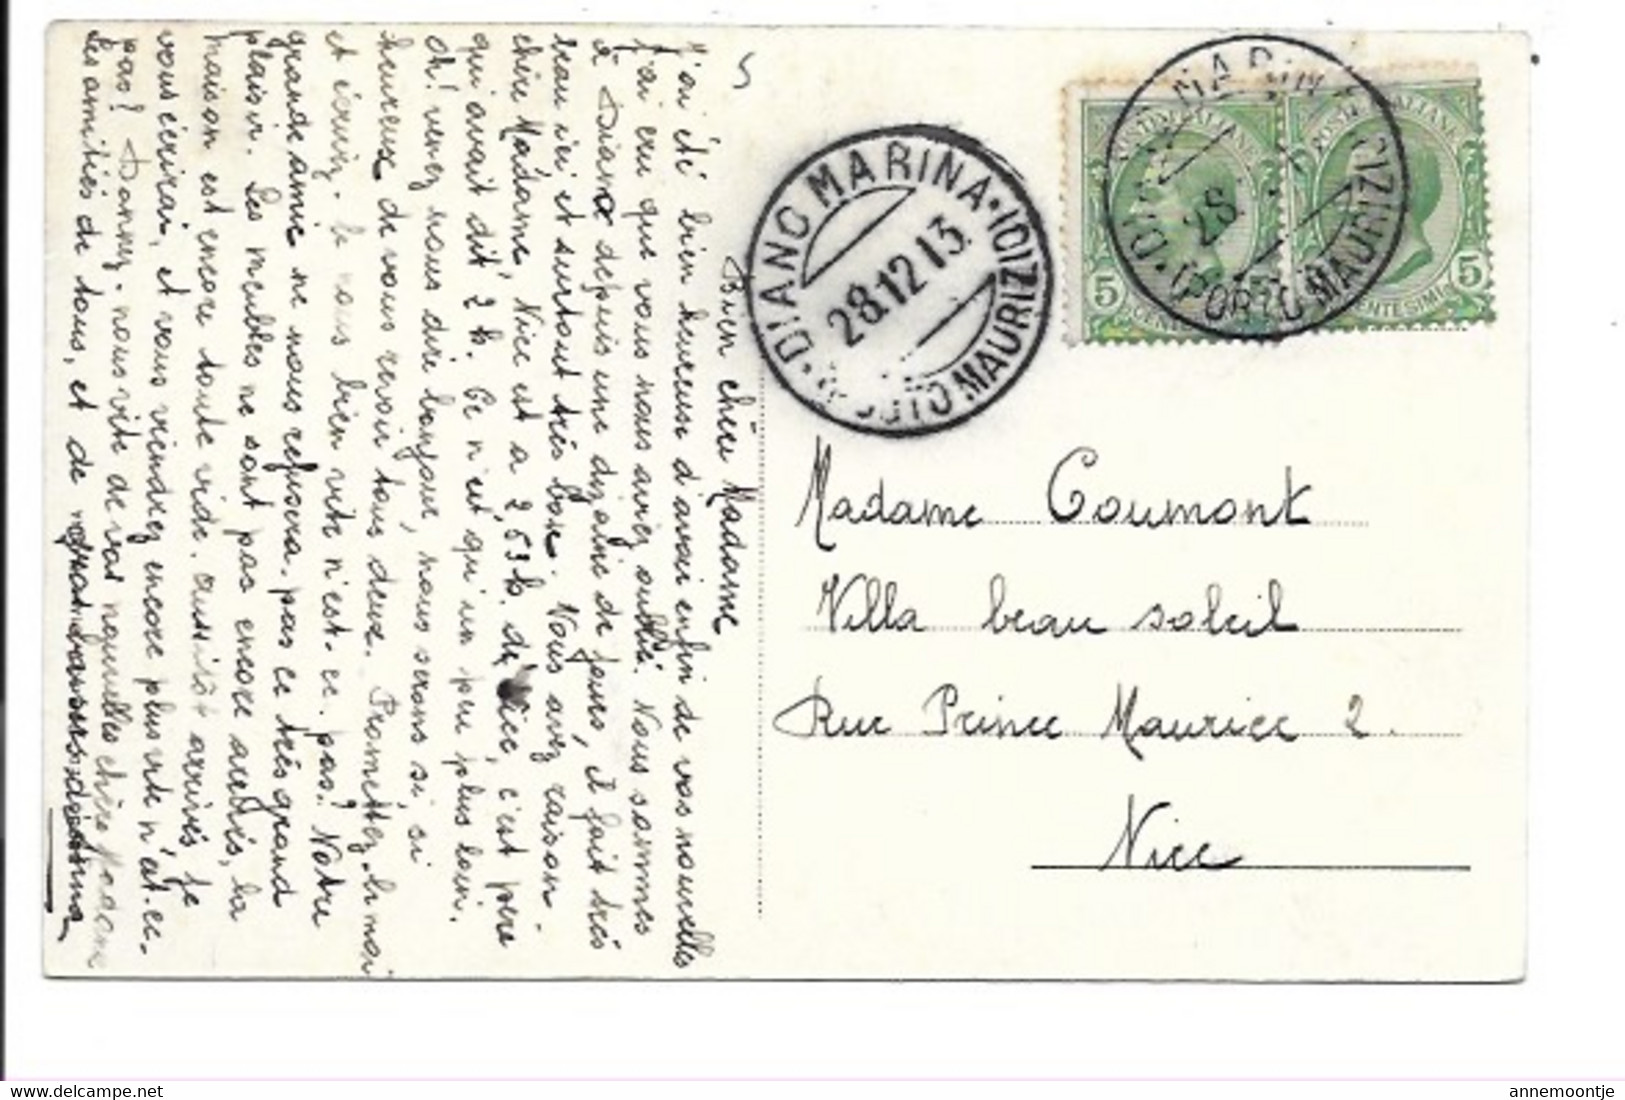 Bien chère Madame
J'ai été bien heureuse d'avoir enfin de vos nouvelles
j'ai cru que vous nous aviez oublié. Nous sommes
à Diano depuis une dizaine de jours, il fait très
beau ici et surtout très bon. Vous avez raison.
chère Madame, Nice est a 2,53h. de Nice, c'est père
qui avait dit 2 h. Ce n'est qu'un peu plus loin.
oh! venez nous dire bonjour, nous serons si, si
heureux de vous revoir tous deux. Promettez-le moi
et écrivez-le nous bien vite n'est-ce-pas? Notre
grande amie ne nous refusera pas ce très grand
plaisir. Les meubles ne sont pas encore arrivés, la
maison est encore toute vide. aussitôt arrivés je
vous écrirai, et vous viendrez encore plus vite n'est-ce-
pas? Donnez-nous vite de vos nouvelles chère Madame
Les amitiés de tous, et de
DIANO MARINA
28.12 13
PORTO MAURIZIO
POSTE ITALIANE
5
CENTESIMI
28
(PORTO MAURIZIO)
5
Madame Coumont
Villa beau soleil
Rue Prince Maurice 2.
Nice
annemoontje